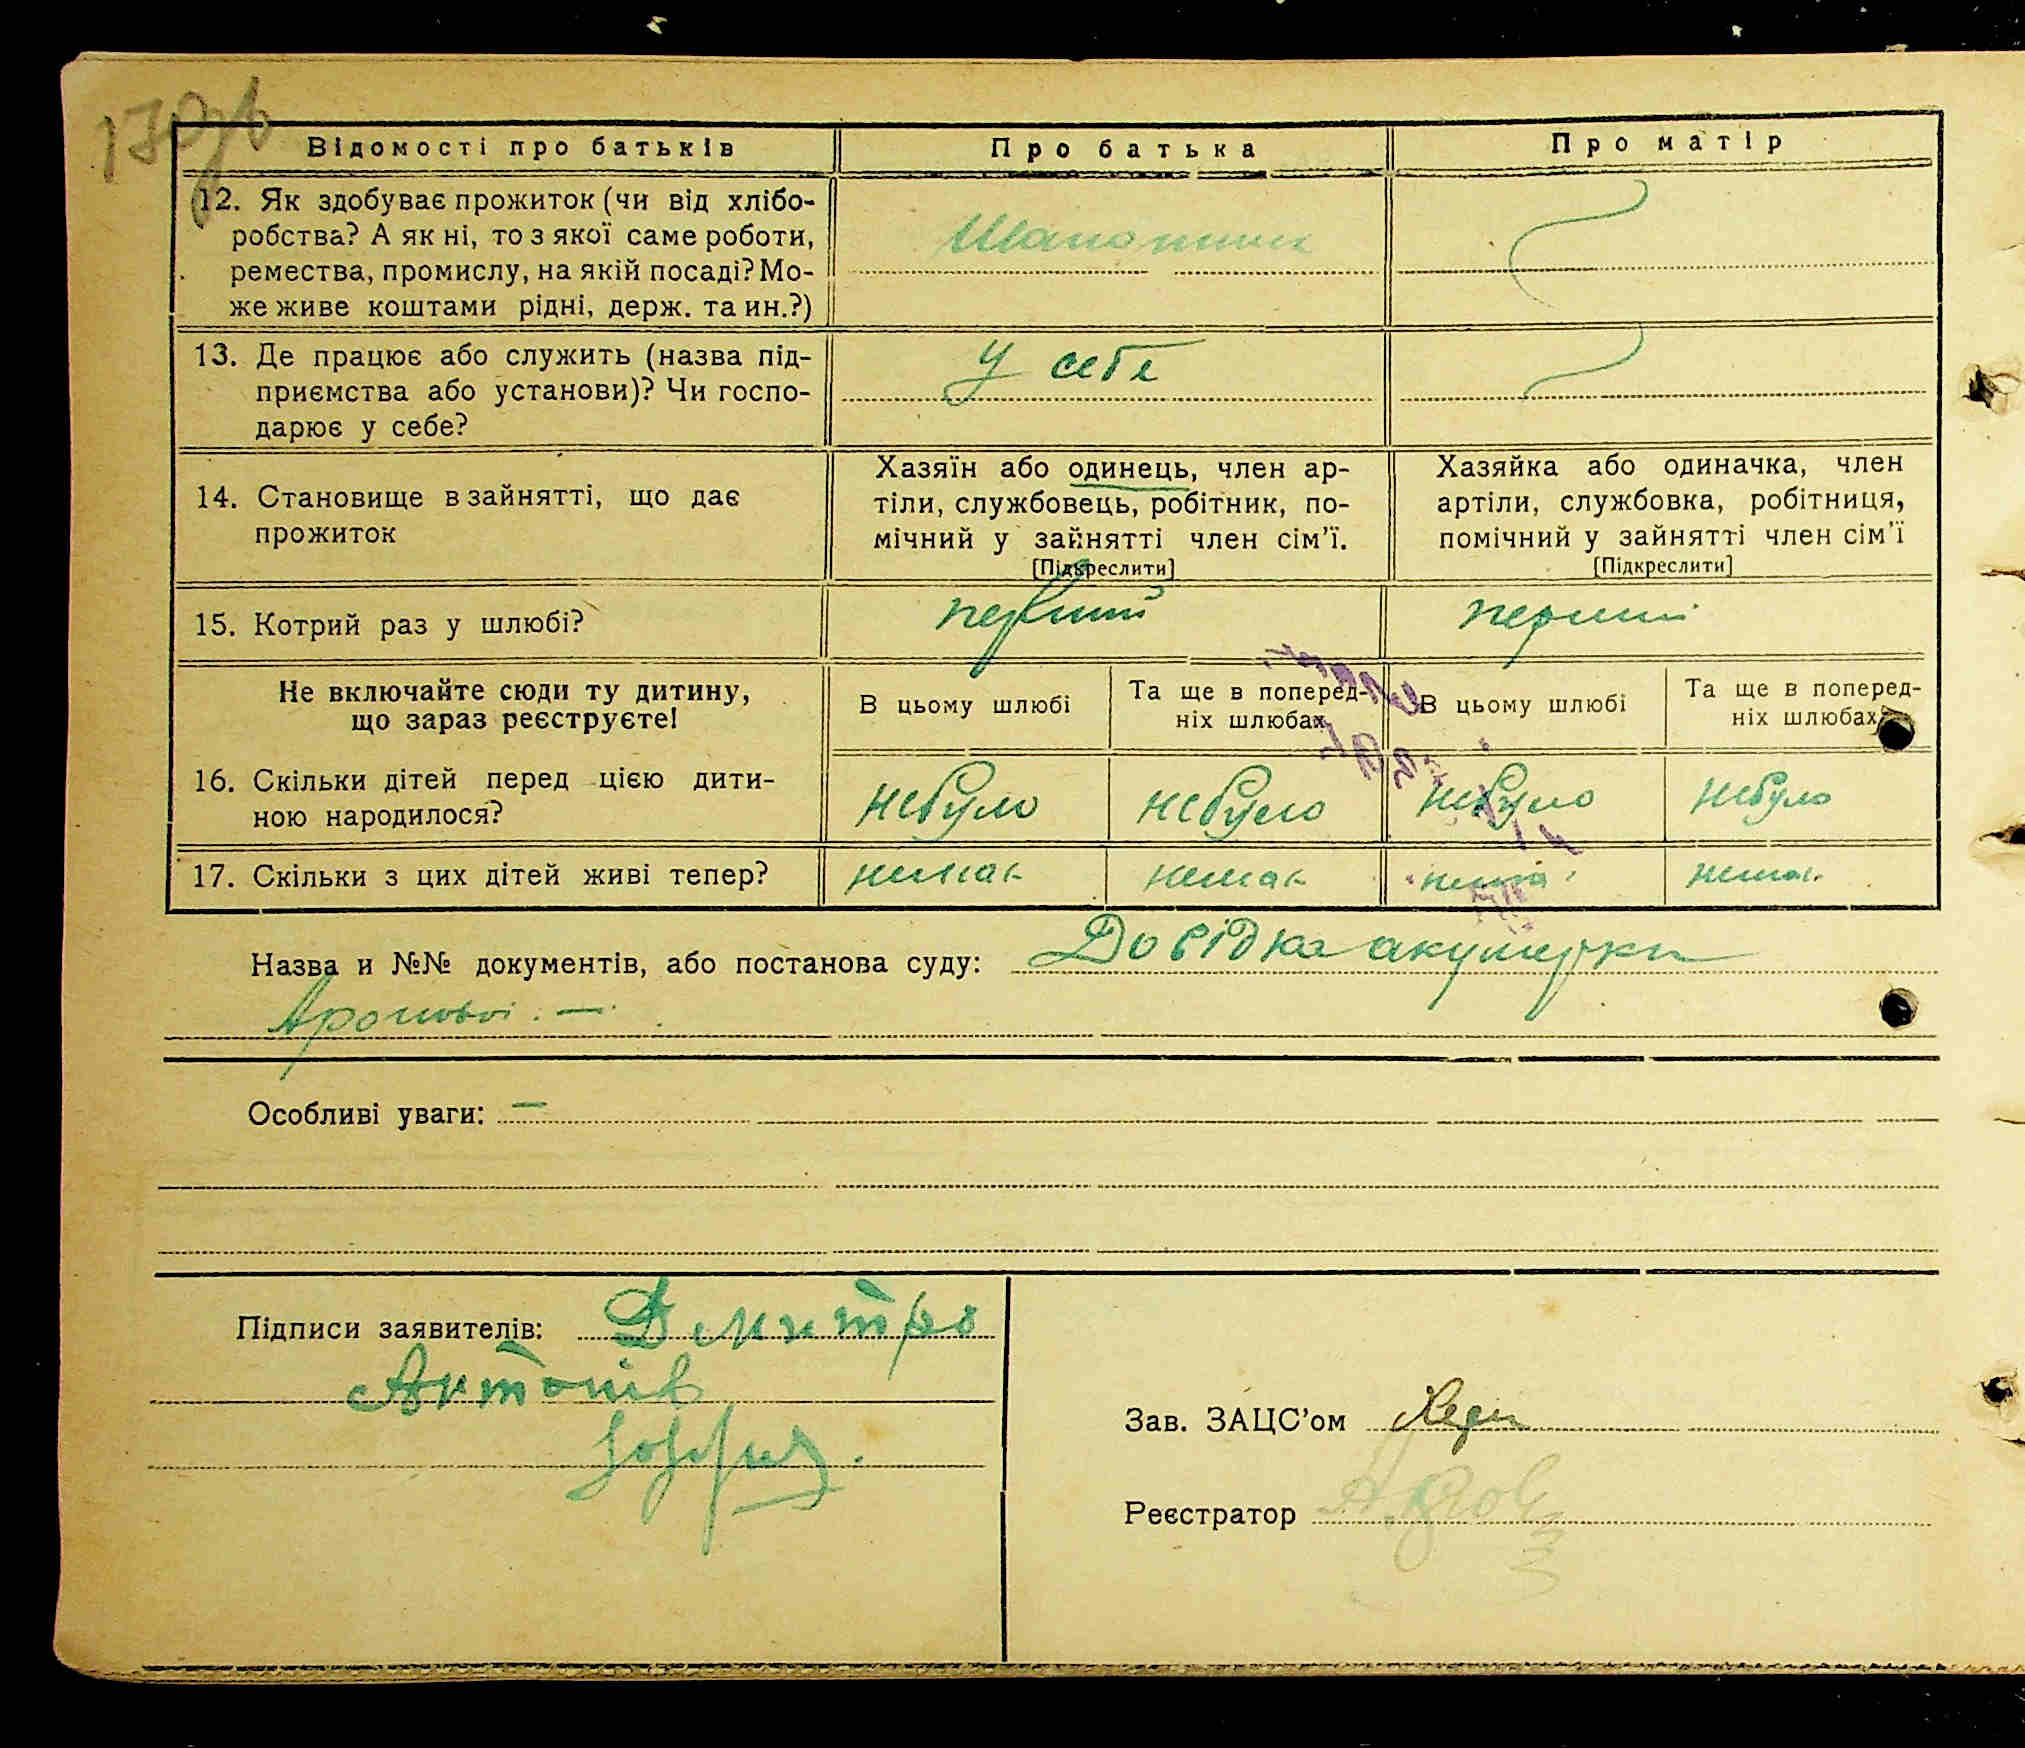 Відомості про батьків
Про батька
Про матір
12. Як здобуває прожиток (чи від хлібо-
робства? А як ні, то з якої саме роботи,
ремества, промислу, на якій посаді? Мо-
же живе коштами рідні, держ. та ин.?)
13. Де працює або служить (назва під-
приємства або установи)? Чи госпо-
дарює у себе?
У себе
14. Становище в зайнятті, що дає
прожиток
Хазяїн або одинець, член ар-
тіли, службовець, робітник, по-
мічний у зайнятті член сім’ї.
[Підкреслити]
Хазяйка або одиначка, член
артіли, службовка, робітниця,
помічний у зайнятті член сім’ї
[Підкреслити]
15. Котрий раз у шлюбі?
перший
перший
Не включайте сюди ту дитину,
що зараз реєструєте!
В цьому шлюбі
Та ще в поперед-
ніх шлюбах
В цьому шлюбі
Та ще в поперед-
ніх шлюбах
16. Скільки дітей перед цією дити-
ною народилося?
небуло
небуло
небуло
небуло
17. Скільки з цих дітей живі тепер?
немає
немає
немає
немає
Назва и №№ документів, або постанова суду: Довідка акушерки
Особливі уваги: —
Підписи заявителів: Дмитро
Антонів
Зав. ЗАЦС’ом
Реєстратор